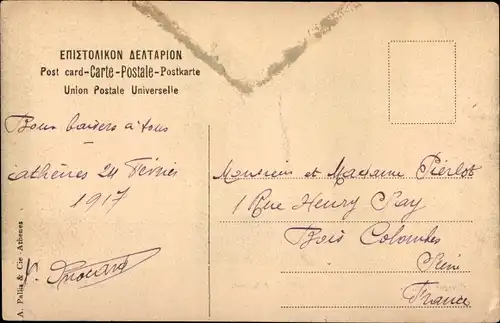 ΕΠΙΣΤΟΛΙΚΟΝ ΔΕΛΤΑΡΙΟΝ
Post card-Carte-Postale-Postkarte
Union Postale Universelle
Bons baisers à tous
Athènes 24 Février
1917
Monsieur et Madame Piérlot
1 Rue Henry Pay
Bois Colombes
Seine
France
A. Pallis & Cie - Athenes